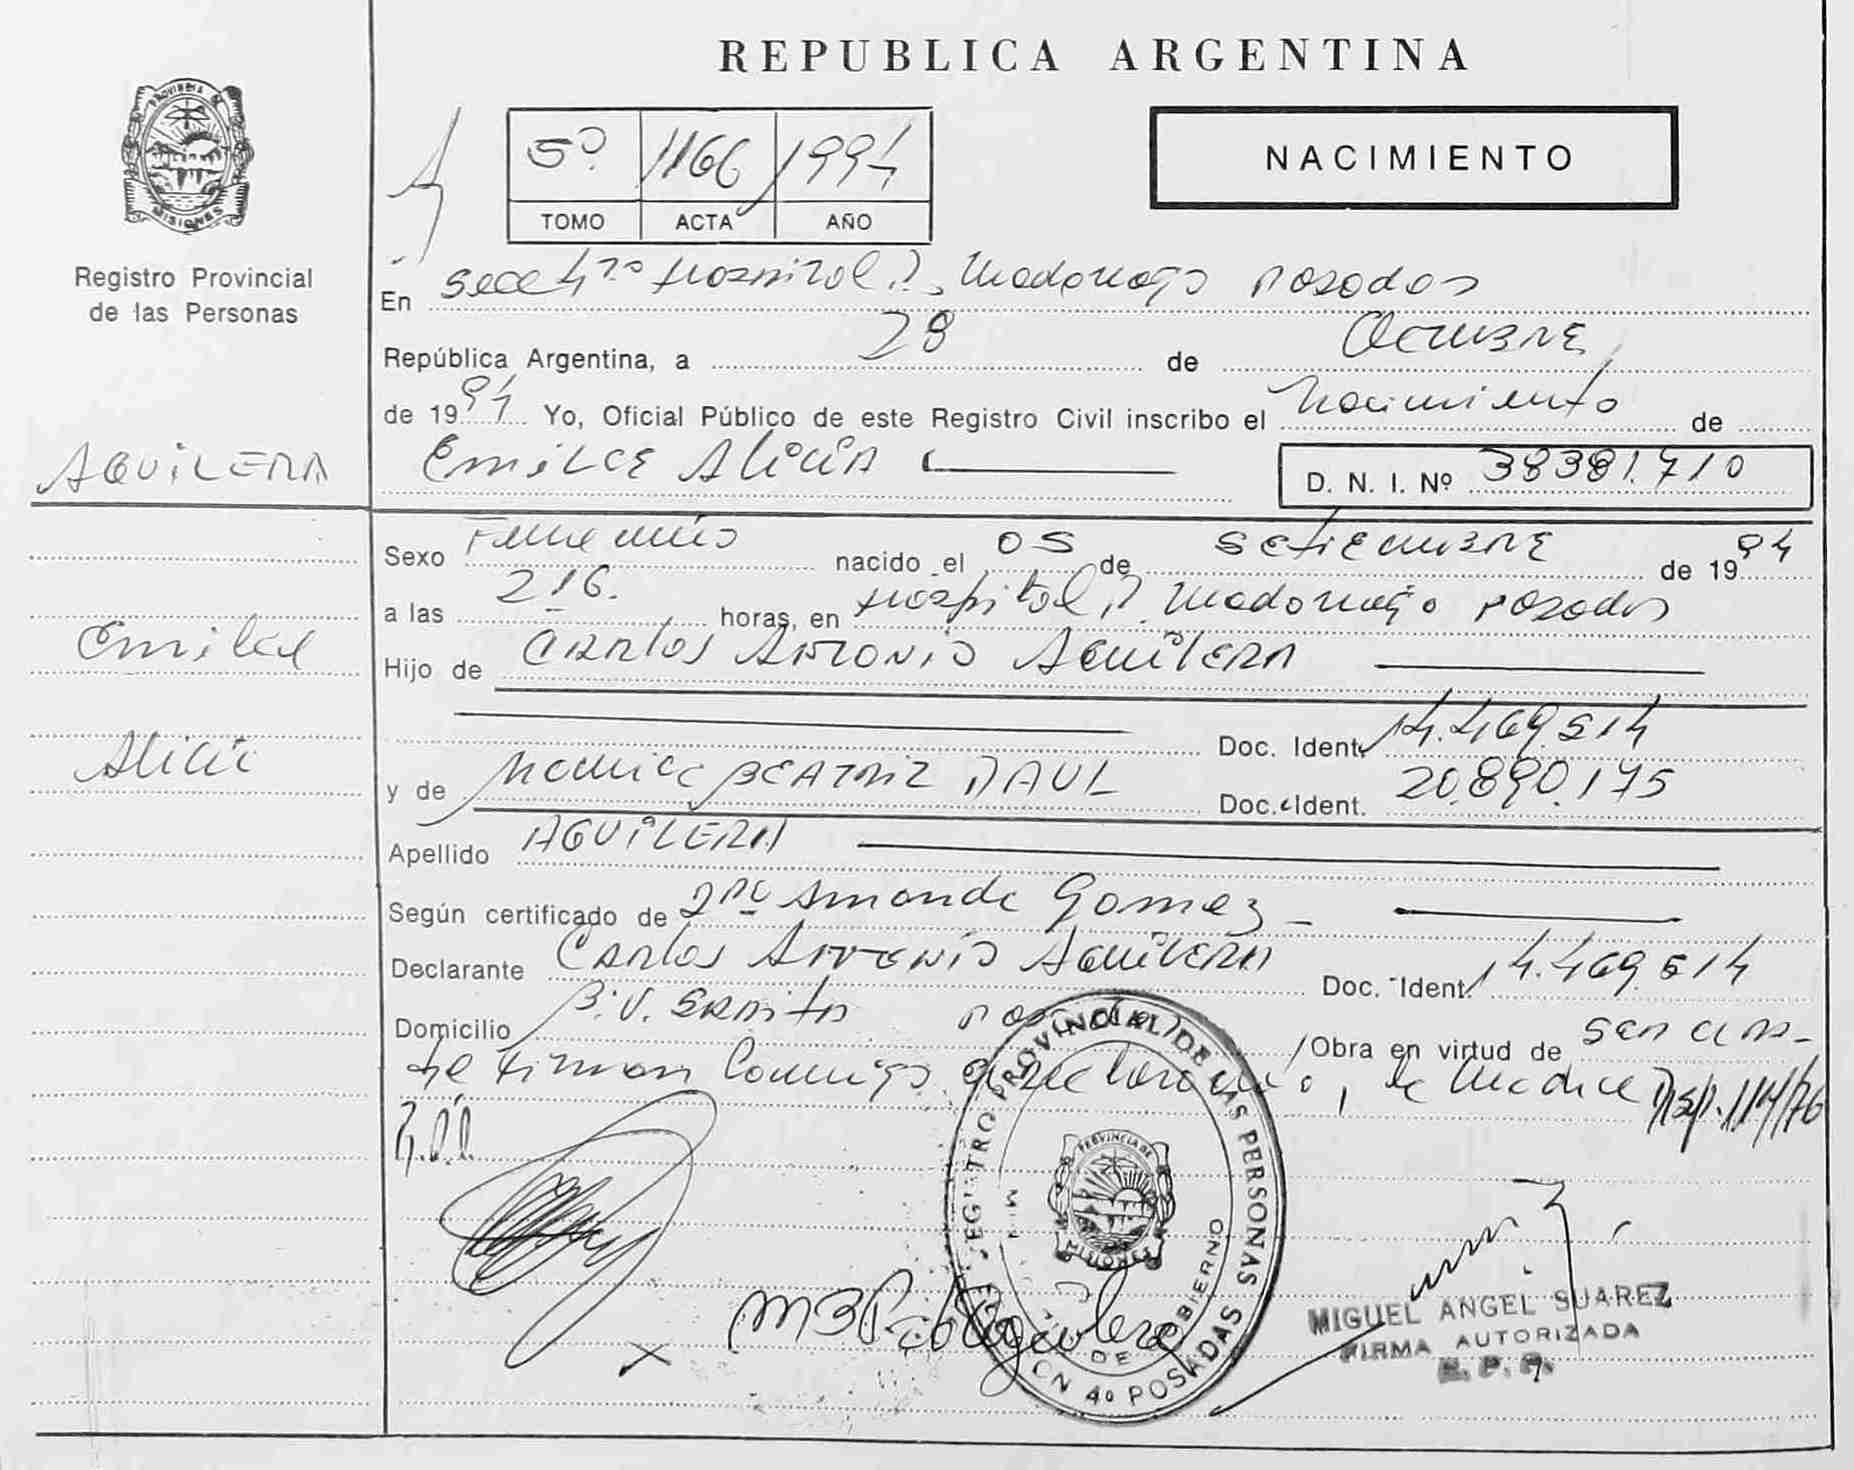 REPUBLICA ARGENTINA
PROVINCIA DE
MISIONES
Registro Provincial
de las Personas
5º 1166 1994
TOMO ACTA AÑO
NACIMIENTO
En Secc 4ta Hospital R. Madariaga Posadas
República Argentina, a 28 de Octubre
de 1994 Yo, Oficial Público de este Registro Civil inscribo el Nacimiento de
AGUILERA
Emilce Alicia
D. N. I. Nº 38381.710
Sexo Femenino nacido el 05 de Setiembre de 1994
a las 2,16. horas, en Hospital R. Madariaga Posadas
Emilce
Hijo de Carlos Antonio Aguilera
Doc. Ident. 14.469.514
Alicia
y de Beatriz Doc. Ident. 20.890.175
Apellido AGUILERA
Según certificado de Amanda Gomez
Declarante Carlos Antonio Aguilera Doc. Ident. 14.469.514
Domicilio B.V. Posadas Obra en virtud de ser el pa-
dre Firman Conmigo el declarante, la Madre Disp. 114/76
REGISTRO PROVINCIAL DE LAS PERSONAS
PROVINCIA DE
MISIONES
DE GOBIERNO
4º POSADAS
MIGUEL ANGEL SUAREZ
FIRMA AUTORIZADA
R. P. P.